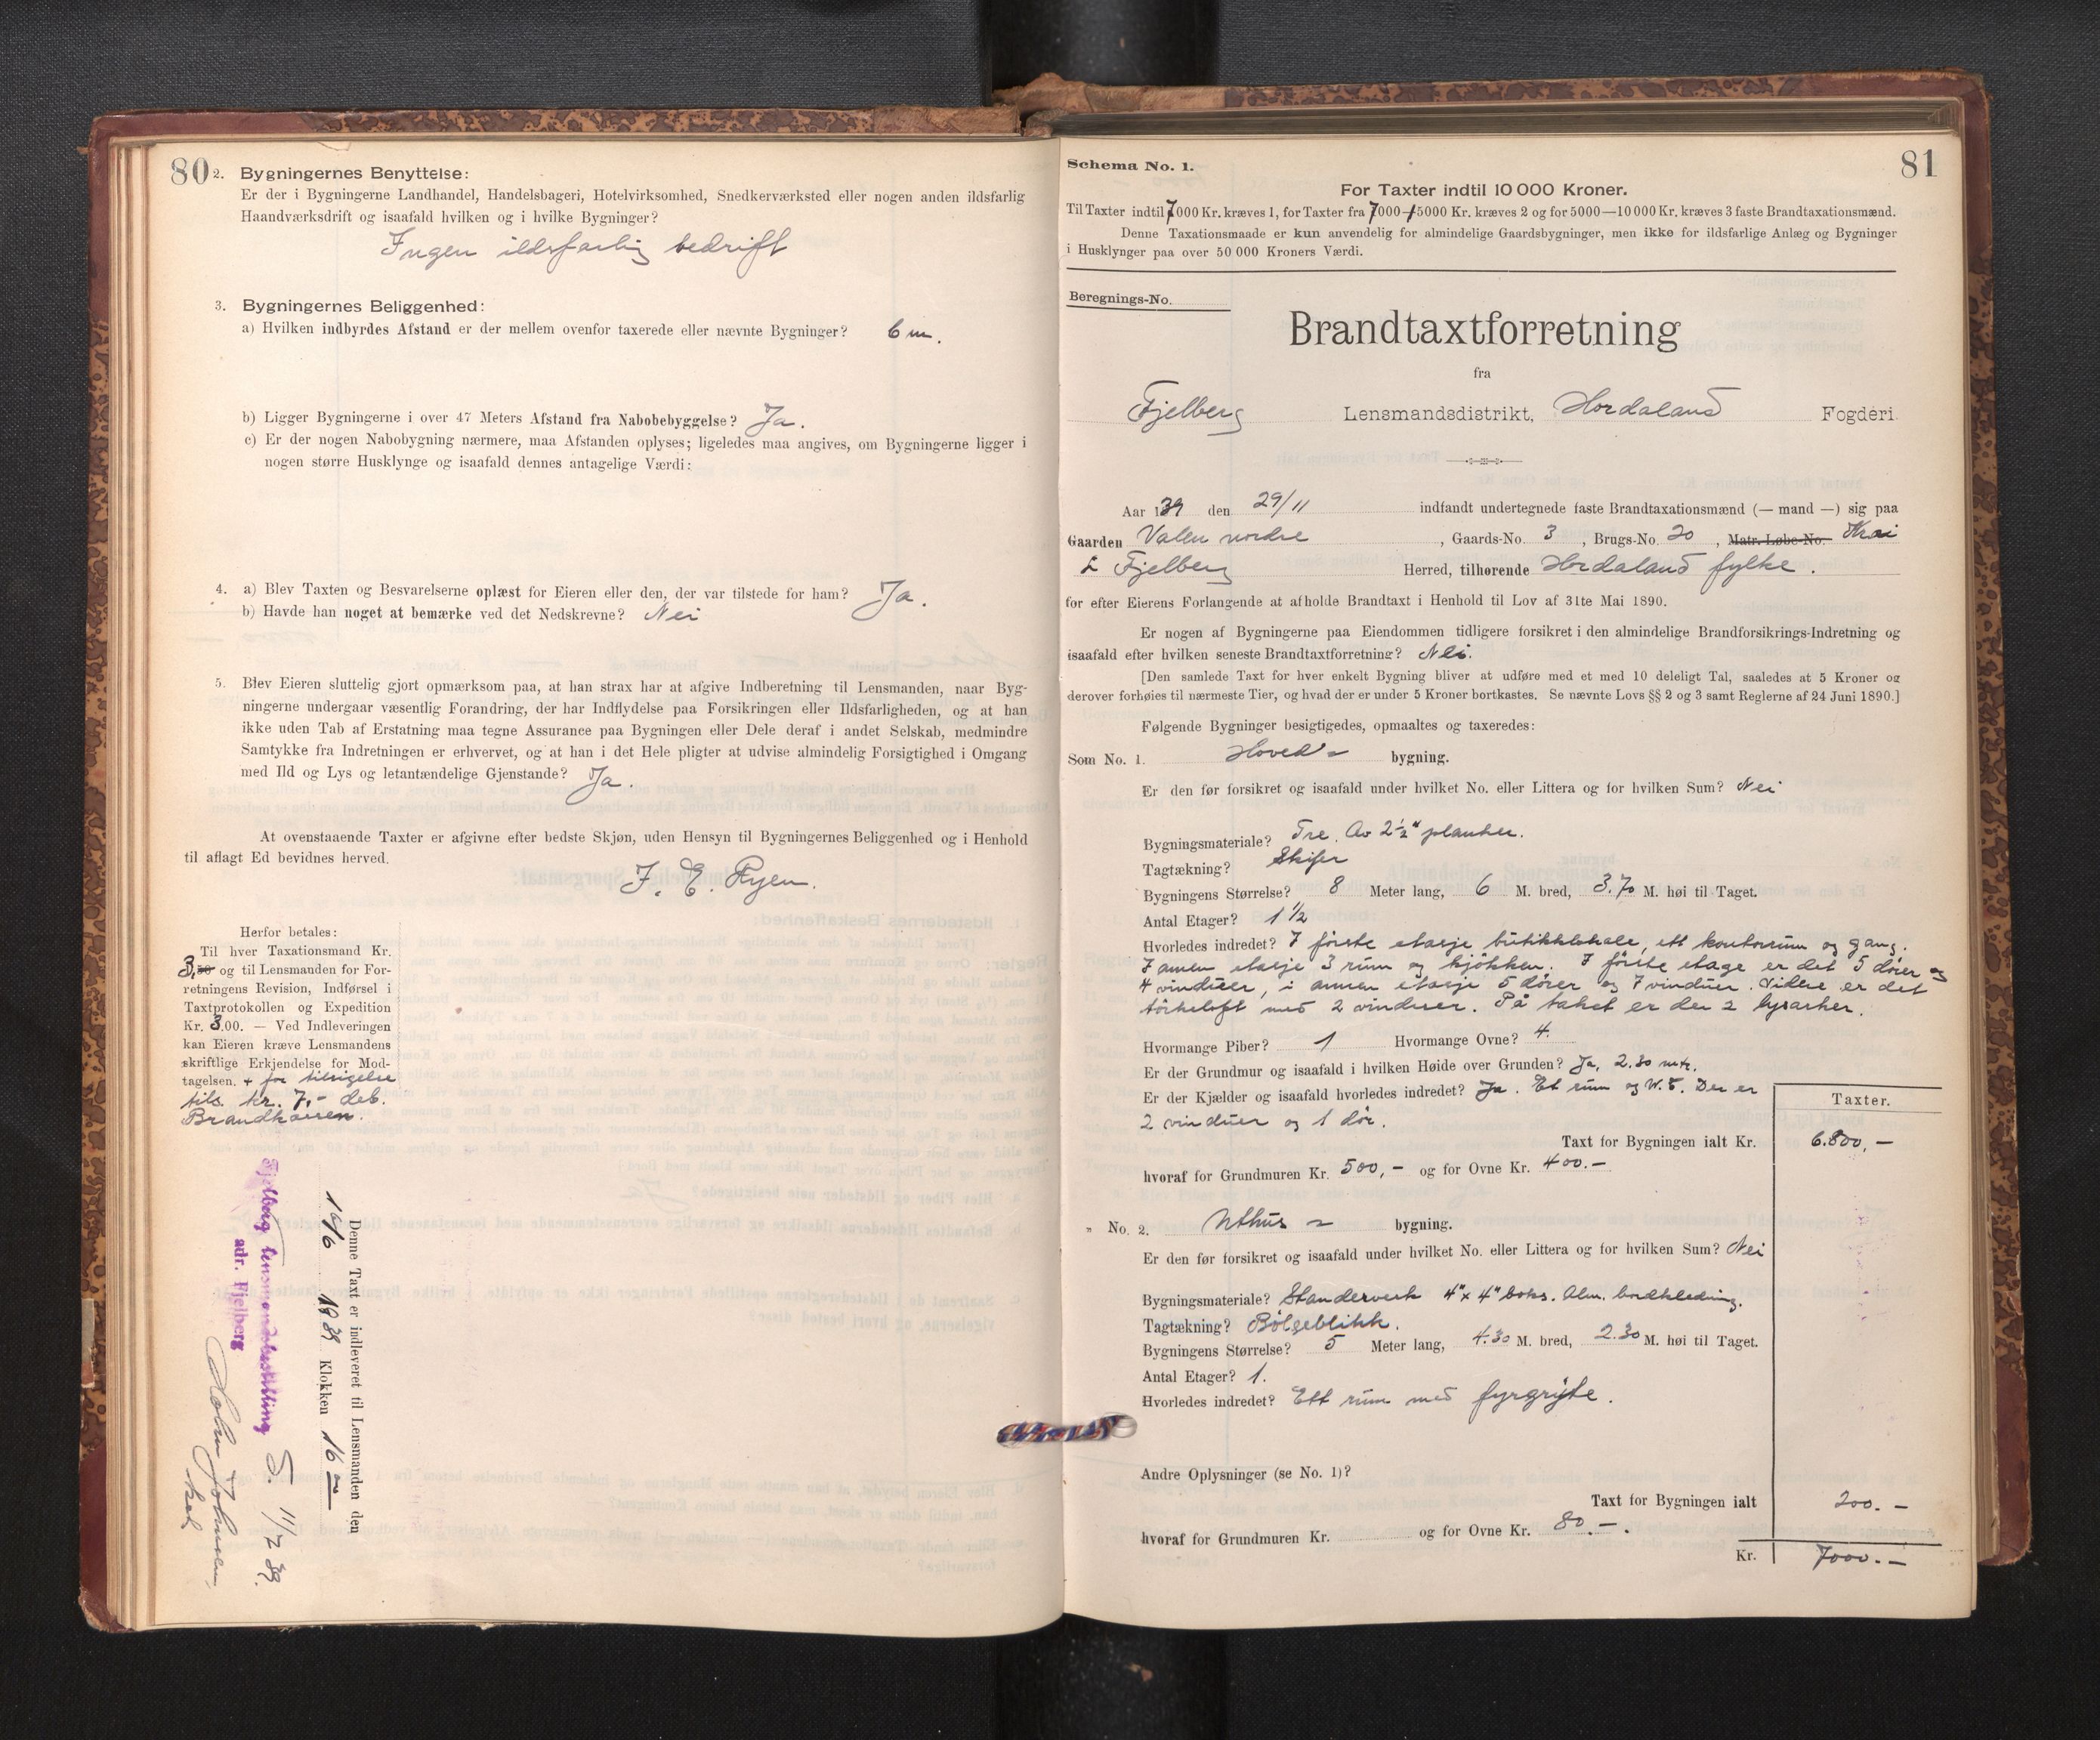 80
2. Bygningernes Benyttelse:
Er der i Bygningerne Landhandel, Handelsbageri, Hotelvirksomhed, Snedkerværksted eller nogen anden ildsfarlig
Haandværksdrift og isaafald hvilken og i hvilke Bygninger?
Ingen ildsfarlig bedrift
3. Bygningernes Beliggenhed:
a) Hvilken indbyrdes Afstand er der mellem ovenfor taxerede eller nævnte Bygninger? 6 m.
b) Ligger Bygningerne i over 47 Meters Afstand fra Nabobebyggelse? Ja.
c) Er der nogen Nabobygning nærmere, maa Afstanden oplyses; ligeledes maa angives, om Bygningerne ligger i
nogen større Husklynge og isaafald dennes antagelige Værdi:
4. a) Blev Taxten og Besvarelserne oplæst for Eieren eller den, der var tilstede for ham? Ja.
b) Havde han noget at bemærke ved det Nedskrevne? Nei
5. Blev Eieren sluttelig gjort opmærksom paa, at han strax har at afgive Indberetning til Lensmanden, naar Byg-
ningerne undergaar væsentlig Forandring, der har Indflydelse paa Forsikringen eller Ildsfarligheden, og at han
ikke uden Tab af Erstatning maa tegne Assurance paa Bygningen eller Dele deraf i andet Selskab, medmindre
Samtykke fra Indretningen er erhvervet, og at han i det Hele pligter at udvise almindelig Forsigtighed i Omgang
med Ild og Lys og letantændelige Gjenstande? Ja.
At ovenstaaende Taxter er afgivne efter bedste Skjøn, uden Hensyn til Bygningernes Beliggenhed og i Henhold
til aflagt Ed bevidnes herved.
J. E. Ryen.
Herfor betales:
Til hver Taxationsmand Kr.
3,50 og til Lensmanden for For-
retningens Revision, Indførsel i
Taxtprotokollen og Expedition
Kr. 3.00. — Ved Indleveringen
kan Eieren kræve Lensmandens
skriftlige Erkjendelse for Mod-
tagelsen. + for tilsigelse
tils. kr. 7,- deb.
Brandkassen.
Denne Taxt er indleveret til Lensmanden den
10/6 1939 Klokken 16
Fjelberg lensmannsbestilling
adr. Fjelberg
S. 11/7 39.
Johnsen
81
Schema No. 1.
For Taxter indtil 10 000 Kroner.
Til Taxter indtil 7000 Kr. kræves 1, for Taxter fra 7000—15000 Kr. kræves 2 og for 5000—10000 Kr. kræves 3 faste Brandtaxationsmænd.
Denne Taxationsmaade er kun anvendelig for almindelige Gaardsbygninger, men ikke for ildsfarlige Anlæg og Bygninger
i Husklynger paa over 50 000 Kroners Værdi.
Beregnings-No.
Brandtaxtforretning
fra
Fjelberg Lensmandsdistrikt, Hordaland Fogderi.
Aar 139 den 29/11 indfandt undertegnede faste Brandtaxationsmænd (— mand —) sig paa
Gaarden Valen nordre , Gaards-No. 3 , Brugs-No. 20 , Matr. Løbe-No.
i Fjelberg Herred, tilhørende Hordaland fylke.
for efter Eierens Forlangende at afholde Brandtaxt i Henhold til Lov af 31te Mai 1890.
Er nogen af Bygningerne paa Eiendommen tidligere forsikret i den almindelige Brandforsikrings-Indretning og
isaafald efter hvilken seneste Brandtaxtforretning? Nei.
[Den samlede Taxt for hver enkelt Bygning bliver at udføre med et med 10 deleligt Tal, saaledes at 5 Kroner og
derover forhøies til nærmeste Tier, og hvad der er under 5 Kroner bortkastes. Se nævnte Lovs §§ 2 og 3 samt Reglerne af 24 Juni 1890.]
Følgende Bygninger besigtigedes, opmaaltes og taxeredes:
Som No. 1. Hoved- bygning.
Er den før forsikret og isaafald under hvilket No. eller Littera og for hvilken Sum? Nei
Bygningsmateriale? Tre. Av 2½" planker.
Tagtækning? Skifer
Bygningens Størrelse? 8 Meter lang, 6 M. bred, 3.70 M. høi til Taget.
Antal Etager? 1 1/2
Hvorledes indredet? I förste etasje butikklokale, ett kontorrum og gang.
I annen etasje 3 rum og kjökken. I förste etage er det 5 dörer og
4 vinduer, i annen etasje 5 dörer og 7 vinduer. Videre er det
törkeloft med 2 vinduer. På taket er der 2 lysarker.
Hvormange Piber? 1 Hvormange Ovne? 4.
Er der Grundmur og isaafald i hvilken Høide over Grunden? Ja, 2.30 mtr.
Er der Kjælder og isaafald hvorledes indredet? Ja. Et rum og W.C. Der er
2 vinduer og 1 dör.
Taxter.
Taxt for Bygningen ialt Kr. 6.800,—
hvoraf for Grundmuren Kr. 500,— og for Ovne Kr. 400.—
" No. 2. Uthus - bygning.
Er den før forsikret og isaafald under hvilket No. eller Littera og for hvilken Sum? Nei
Bygningsmateriale? Standerverk 4" x 4" boks. Alm. bordkledning.
Tagtækning? Bölgeblikk.
Bygningens Størrelse? 5 Meter lang, 4.30 M. bred, 2.30 M. høi til Taget.
Antal Etager? 1.
Hvorledes indredet? Ett rum med fyrgryte.
Andre Oplysninger (se No. 1)?
Taxt for Bygningen ialt 200.—
hvoraf for Grundmuren Kr. og for Ovne Kr. 80.—.
Kr. 7000.—